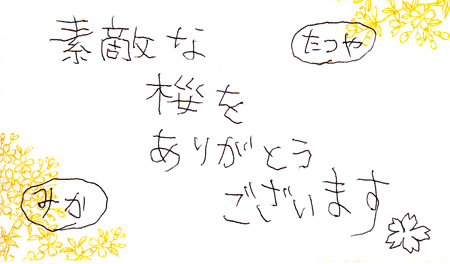 素敵な
たつや
桜を
ありがとう
みか
ございます